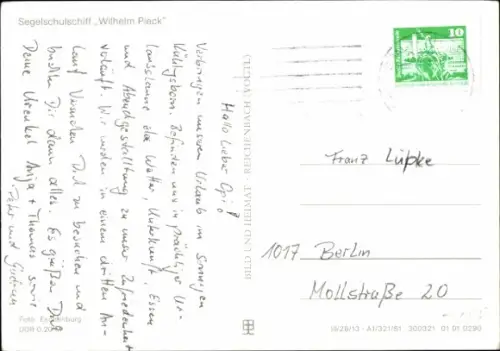 Segelschulschiff „Wilhelm Pieck“
Hallo lieber Opi!
Verbringen unseren Urlaub im sonnigen
Kühlungsborn. Befinden uns in prächtiger Ur-
laubslaune da Wetter, Unterkunft, Essen
und Abendgestaltung zu unser Zufriedenheit
verläuft. Wir werden in einem dritten An-
lauf versuchen Dich zu besuchen und
Dir dann alles. Es grüßen Dich
Deine Urenkel Anja + Thomas sowie
und
BILD UND HEIMAT REICHENBACH (VOGTL)
10
Franz Lüpke
1017 Berlin
Mollstraße 20
Foto:
DDR 0,20
IV/26/13 A1/321/81 300321 01 01 0290